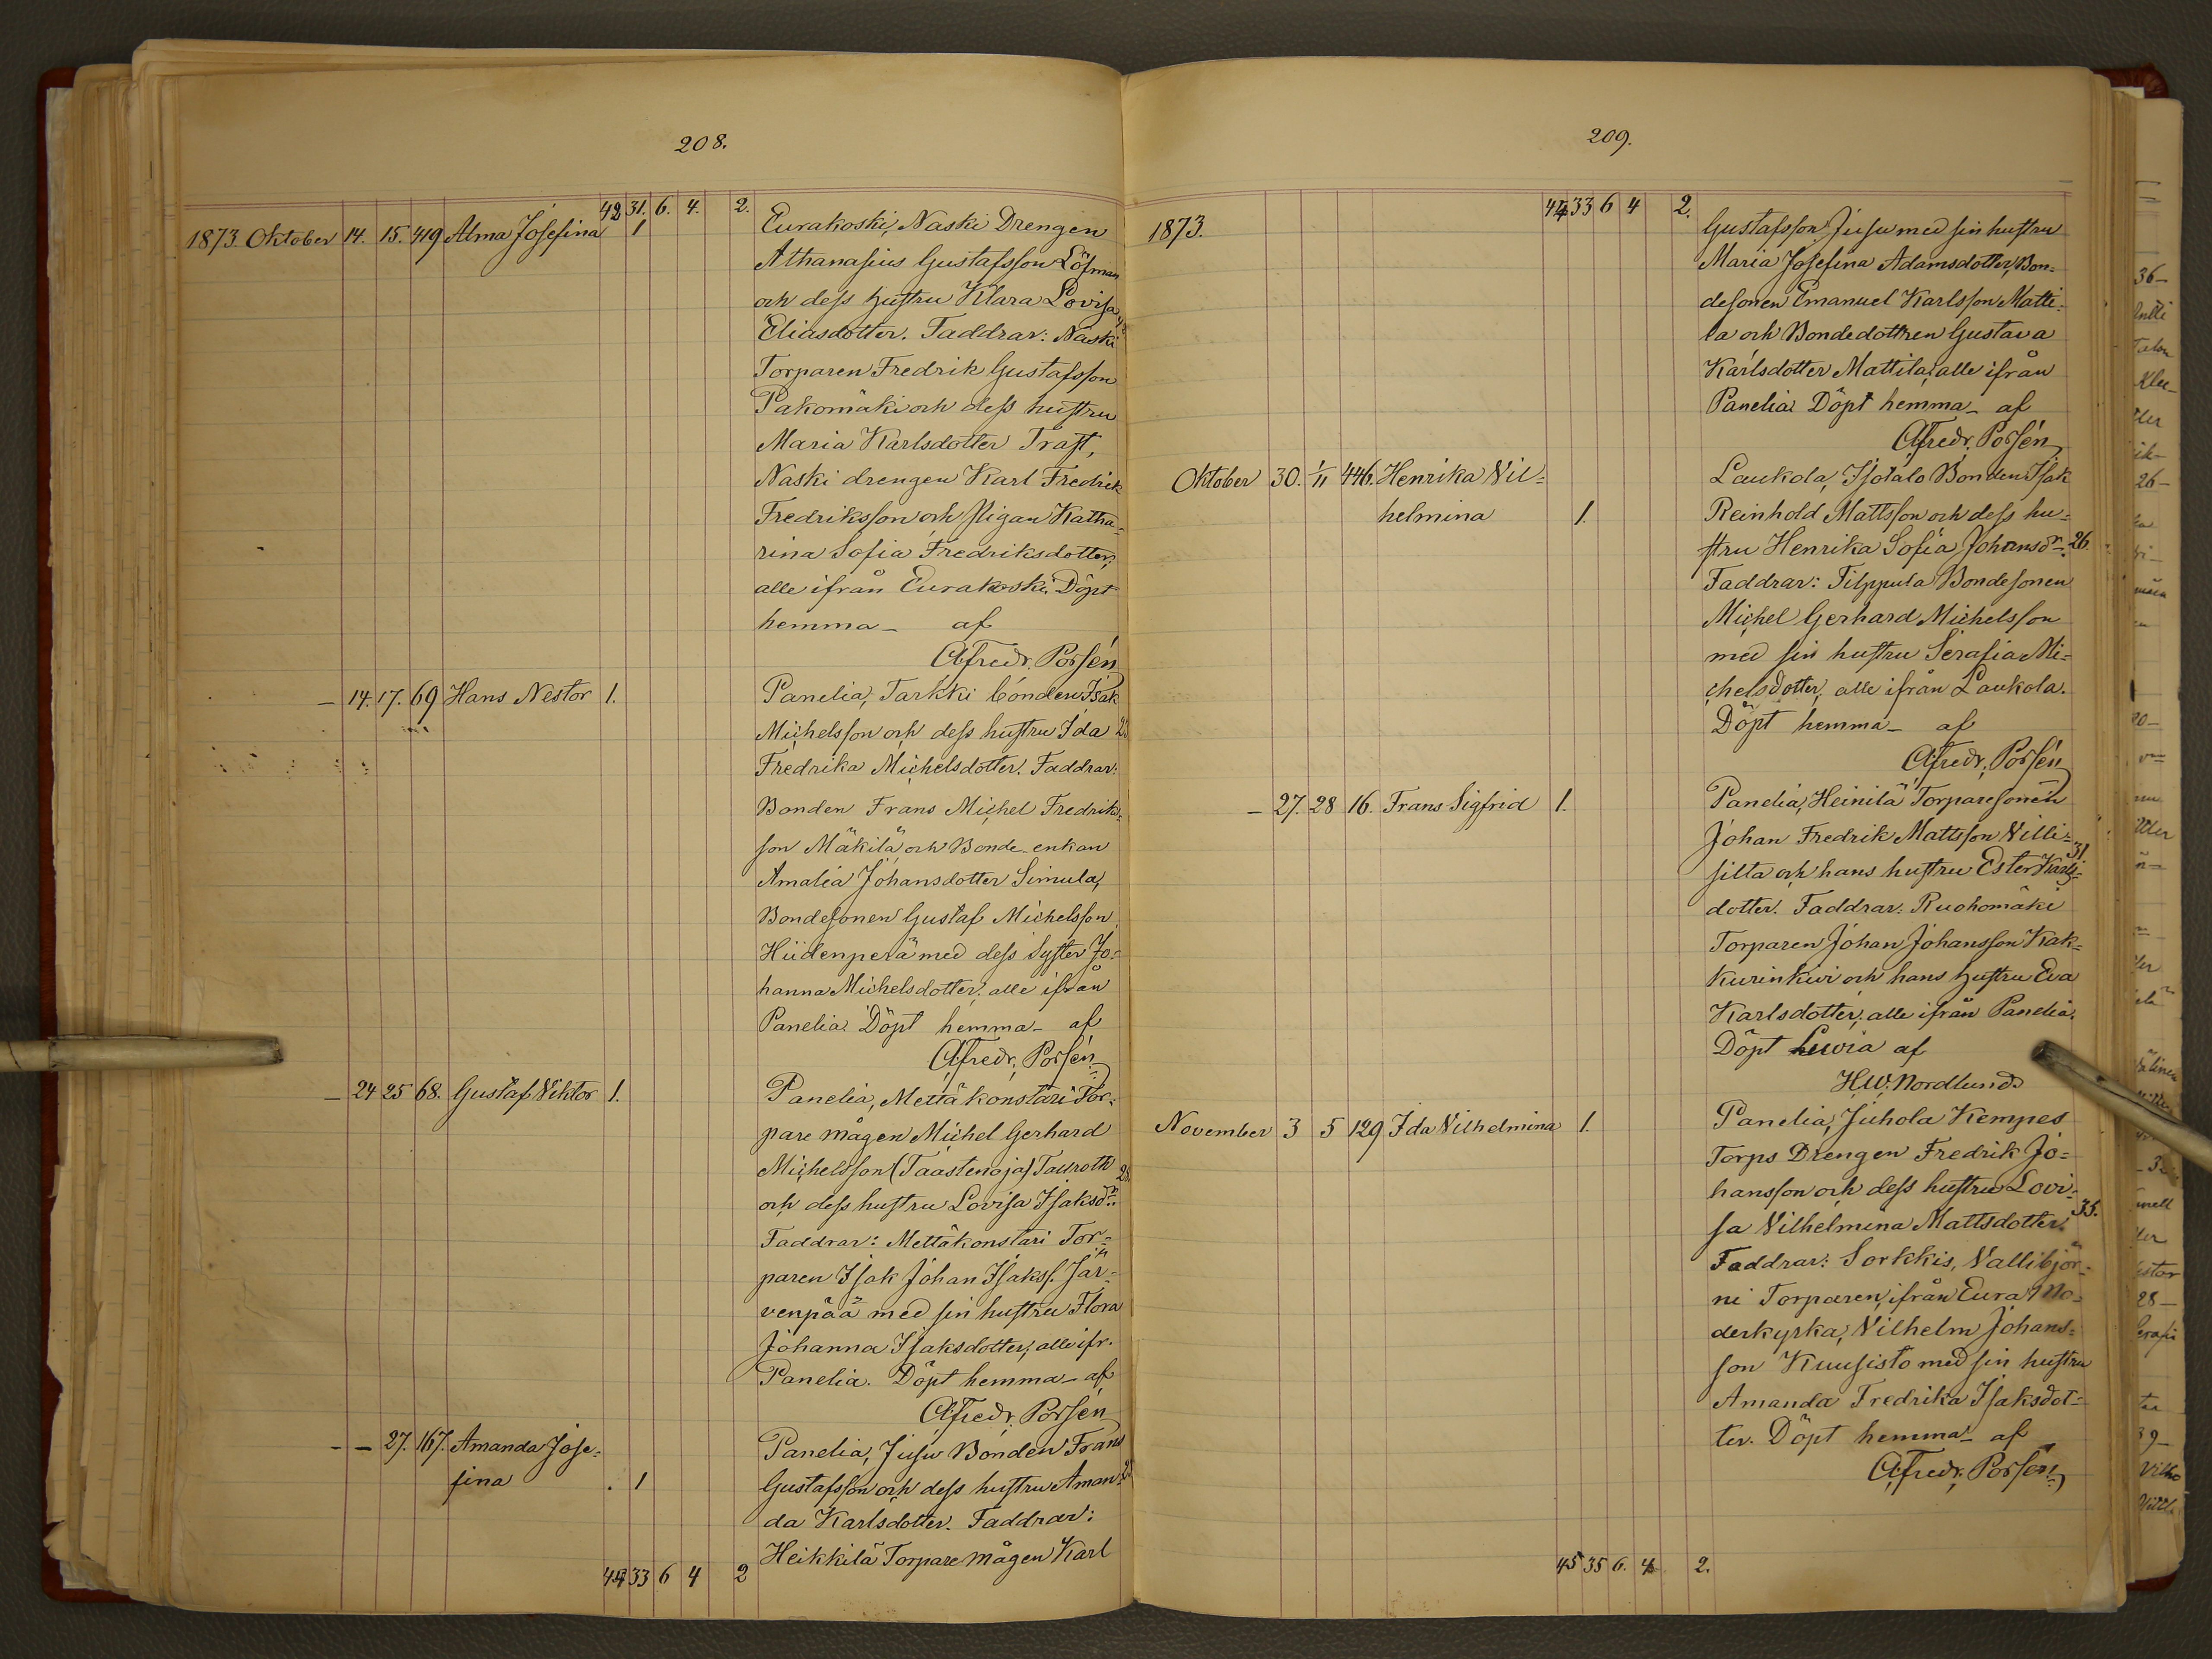 208.
42 31. 6. 4. 2.
1873. Oktober 14. 15. 419 Alma Josefina 1 Eurakoski, Naski Drengen
Athanasius Gustafsson Löfman
och dess hustru Klara Lovisa
Eliasdotter. Faddrar: Naski
Torparen Fredrik Gustafsson
Pakomäki och dess hustru
Maria Karlsdotter Trast,
Naski drengen Karl Fredrik
Fredriksson och Pigan Katha-
rina Sofia Fredriksdotter,
alle ifrån Eurakoski. Döpt
hemma - af
Alfredr. Porsén
- 14. 17. 69 Hans Nestor 1. Panelia, Tarkki bonden Isak
Michelsson och dess hustru Ida
Fredrika Michelsdotter. Faddrar:
Bonden Frans Michel Fredriks-
son Mäkilä och Bonde-enkan
Amalia Johansdotter Simula,
Bondesonen Gustaf Michelsson
Hiidenperä med dess Syster Jo-
hanna Michelsdotter, alle ifrån
Panelia. Döpt hemma - af
Alfredr. Porsén
- 24 25 68. Gustaf Viktor 1. Panelia, Mettäkonstari Tor-
pare mågen Michel Gerhard
Michelsson (Taastenoja) Tauroth 28.
och dess hustru Lovisa Isaksdr.
Faddrar: Mettäkonstari Tor-
paren Isak Johan Isakss. Jär-
venpää med sin hustru Flora
Johanna Isaksdotter, alle ifr.
Panelia. Döpt hemma - af
Alfredr. Porsén
- - 27. 167. Amanda Jose- Panelia, Jusu Bonden Frans
fina 1 Gustafsson och dess hustru Aman-
da Karlsdotter. Faddrar:
Heikkilä Torpare mågen Karl
44 33 6 4 2
209.
44 33 6 4 2.
1873. Gustafsson Jusu med sin hustru
Maria Josefina Adamsdotter, Bon-
desonen Emanuel Karlsson Matti-
la och Bondedottren Gustava
Karlsdotter Mattila, alle ifrån
Panelia. Döpt hemma - af
Alfredr. Porsén
Oktober 30. 1/11 446. Henrika Vil- Laukola, Isotalo Bonden Isak
helmina 1. Reinhold Mattsson och dess hu-
stru Henrika Sofia Johansdr. 26.
Faddrar: Filppula Bondesonen
Michel Gerhard Michelsson
med sin hustru Serafia Mi-
chelsdotter, alle ifrån Laukola.
Döpt hemma - af
Alfredr. Porsén
- 27. 28 16. Frans Sigfrid 1. Panelia, Heinilä Torparesonen
Johan Fredrik Mattsson Villi-
silta och hans hustru Ester Karls- 31.
dotter. Faddrar: Ruohomäki
Torparen Johan Johansson Kak-
kurinkivi och hans hustru Eva
Karlsdotter, alle ifrån Panelia.
Döpt Luvia af
H.W. Nordlund.
November 3 5 129 Ida Vilhelmina 1. Panelia, Juhola Kempes
Torps Drengen Fredrik Jo-
hansson och dess hustru Lovi-
sa Vilhelmina Mattsdotter. 35.
Faddrar: Sorkkis, Vallibjör-
ni Torparen, ifrån Eura Mo-
derkyrka, Vilhelm Johans-
son Kuusisto med sin hustru
Amanda Fredrika Isaksdot-
ter. Döpt hemma - af
Alfredr. Porsén
45 35 6. 4 2.